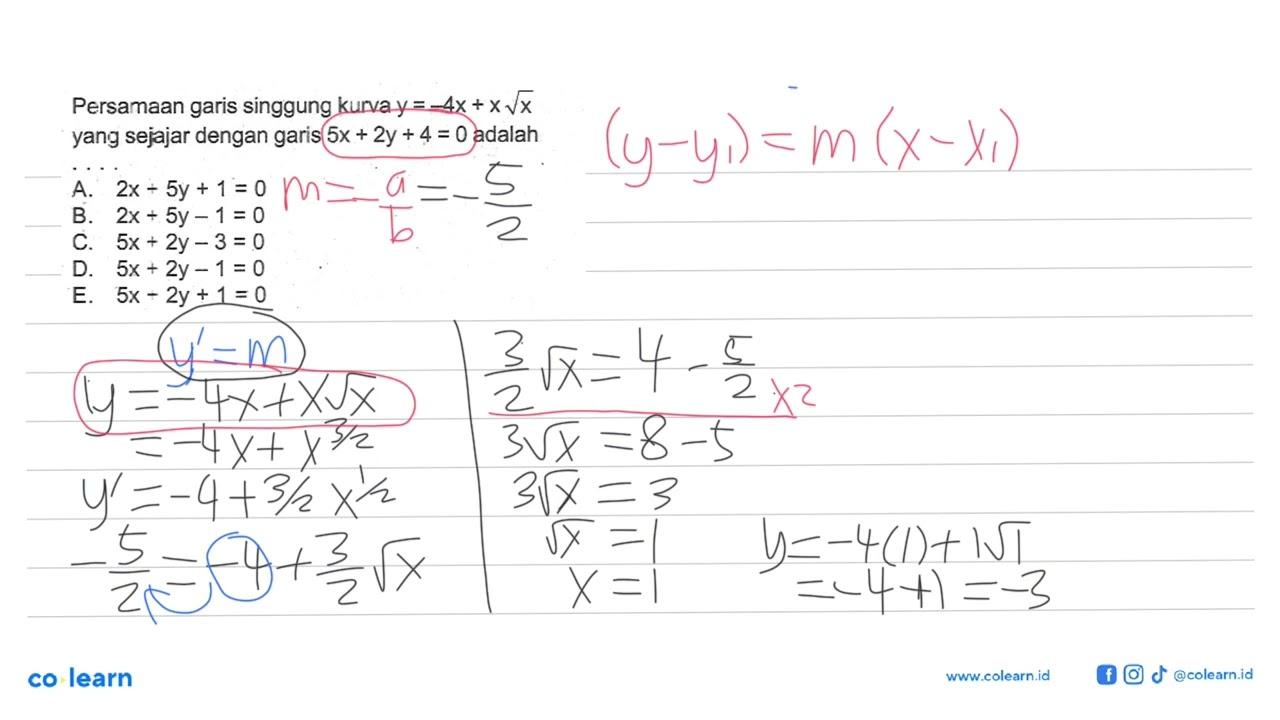 Persamaan garis singgung kurva y = –4x + x√x
yang sejajar dengan garis 5x + 2y + 4 = 0 adalah
. . . .
A. 2x + 5y + 1 = 0
B. 2x + 5y – 1 = 0
C. 5x + 2y – 3 = 0
D. 5x + 2y – 1 = 0
E. 5x + 2y + 1 = 0
m = -a/b = -5/2
(y-y₁) = m(x-x₁)
y' = m
y = -4x + x√x
= -4x + x^3/2
y' = -4 + 3/2 x^1/2
-5/2 = -4 + 3/2 √x
3/2 √x = 4 - 5/2 x2
3√x = 8 - 5
3√x = 3
√x = 1
x = 1
y = -4(1) + 1√1
= -4 + 1 = -3
co learn
www.colearn.id
@colearn.id